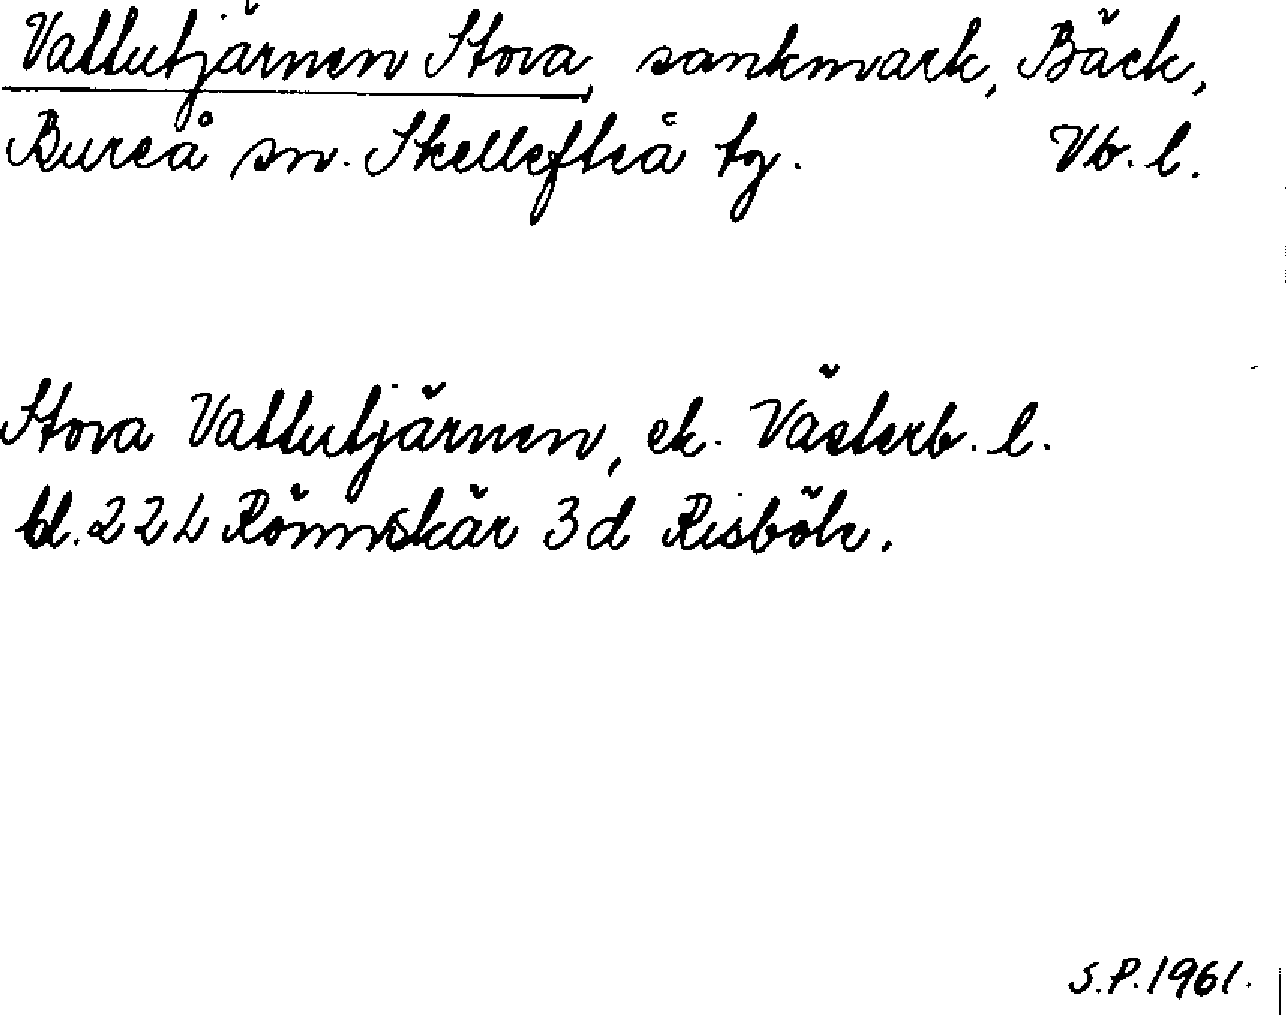 Vattutjärnen Stora, sankmark, Bäck,
Bureå sn. Skellefteå tg. Vb. l.
Stora Vattutjärnen, ek. Västerb. l.
bl. 22L Rönnskär 3d Risböle.
S.P. 1961.